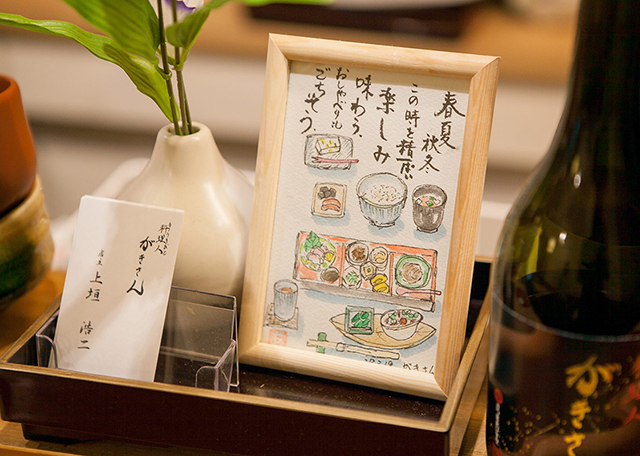 春夏
秋冬
この時を精一杯
楽しみ
味わう、
おしゃべりも
ごちそう、
がきさん
料理人
がきさん
店主 上垣 浩二
がきさ